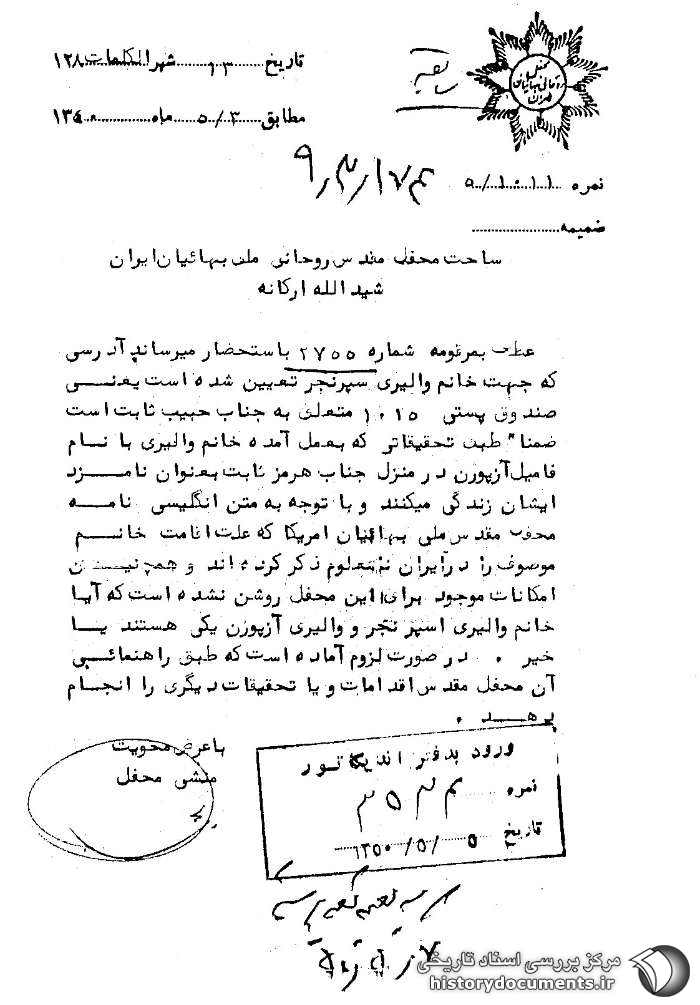 محفل روحانی بهائیان طهران
سابقه
تاریخ ۱۳ شهر الکلمات ۱۲۸
مطابق ۵/۳ ماه ۱۳۵۰
نمره ۵/۱۰۱۱
ضمیمه
ساحت محفل مقدس روحانی ملی بهائیان ایران
شیدالله ارکانه
عطف بمرقومه شماره ۲۷۵۵ باستحضار میرساند آدرسی
که جهت خانم والیری سپرنجر تعیین شده است یعنی
صندوق پستی ۱۰۱۵ متعلق به جناب حبیب ثابت است
ضمنا" طبق تحقیقاتی که بعمل آمده خانم والیری با نام
فامیل آزپورن در منزل جناب هرمز ثابت بعنوان نامزد
ایشان زندگی میکنند و با توجه به متن انگلیسی نامه
محفل مقدس ملی بهائیان امریکا که علت اقامت خانم
موصوف را در ایران نامعلوم ذکر کرده اند و همچنین
امکانات موجود برای این محفل روشن نشده است که آیا
خانم والیری اسپرنجر و والیری آزپورن یکی هستند یا
خیر . در صورت لزوم آماده است که طبق راهنمائی
آن محفل مقدس اقدامات و یا تحقیقات دیگری را انجام
بدهد .
با عرض محویت
منشی محفل
ورود بدفتر اندیکاتور
نمره
تاریخ ۵/۵/۱۳۵۰
مرکز بررسی اسناد تاریخی
historydocuments.ir